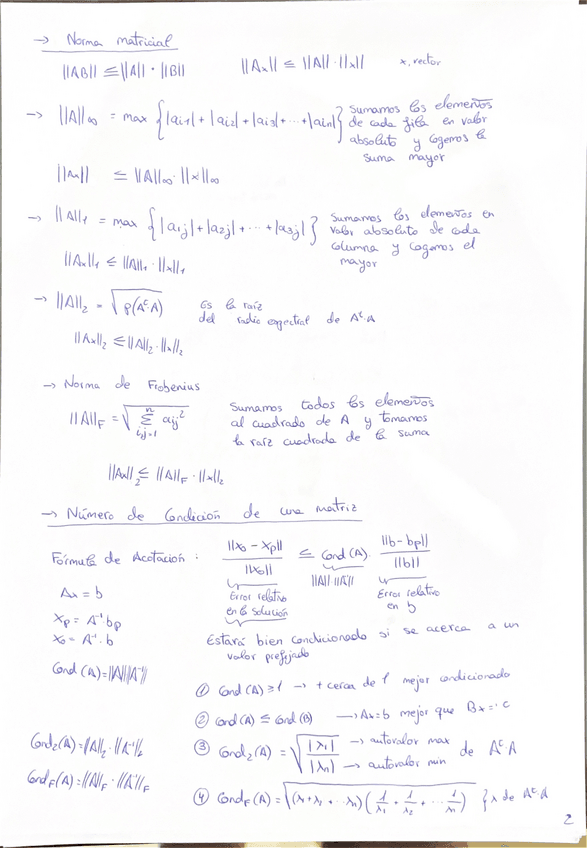 → Norma matricial
||AB|| ≤ ||A|| · ||B||    ||Ax|| ≤ ||A|| · ||x||    x, vector
→ ||A||∞ = max {|ai1| + |ai2| + |ai3| + ··· + |ain|} Sumamos los elementos
de cada fila en valor
absoluto y cogemos la
suma mayor
||Ax|| ≤ ||A||∞ · ||x||∞
→ ||A||₁ = max {|a1j| + |a2j| + ··· + |a3j|} Sumamos los elementos en
valor absoluto de cada
columna y cogemos el
mayor
||Ax||₁ ≤ ||A||₁ · ||x||₁
→ ||A||₂ = √ρ(Aᵗ·A) Es la raíz
del radio espectral de Aᵗ·A
||Ax||₂ ≤ ||A||₂ · ||x||₂
→ Norma de Frobenius
||A||F = √(∑ⁿi,j=1 aij²) Sumamos todos los elementos
al cuadrado de A y tomamos
la raíz cuadrada de la suma
||Ax||₂ ≤ ||A||F · ||x||₂
→ Número de Condición de una matriz
Fórmula de Acotación : ||x₀ - xp|| / ||x₀|| ≤ Cond (A) · ||b - bp|| / ||b||
||A|| ||A⁻¹||
Error relativo en la solución
Error relativo en b
Ax = b
xp = A⁻¹ bp
x₀ = A⁻¹ · b
Estará bien condicionado si se acerca a un
valor prefijado
Cond (A) = ||A|| ||A⁻¹||
① Cond (A) ≥ 1 → + cerca de 1 mejor condicionado
② Cond (A) ≤ Cond (B) → Ax = b mejor que Bx = c
Cond₂(A) = ||A||₂ · ||A⁻¹||₂
③ Cond₂ (A) = √(|λ1| / |λn|) → autovalor max → autovalor min de Aᵗ·A
CondF(A) = ||A||F · ||A⁻¹||F
④ CondF (A) = √((λ1 + λ2 + ··· λn) (1/λ1 + 1/λ2 + ··· 1/λn)) } λ de Aᵗ·A
2